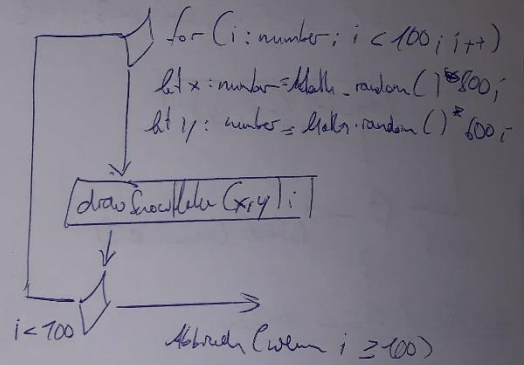 for (i : number ; i < 100 ; i++)
let x : number = Math.random() * 800;
let y : number = Math.random() * 600;
drawSnowflake (x,y);
i < 100
Abbruch (wenn i ≥ 100)